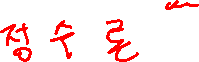 정수론